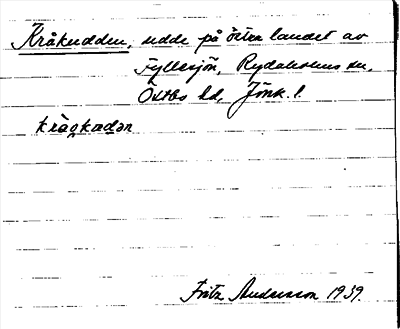 Kråkudden, udde på östra landet av
Fyllesjön, Rydaholms sn,
Östbo hd, Jönk. l.
kråkudən
Fritz Andersson 1939.